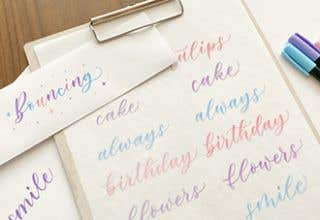 Bouncing
tulips
cake cake
always always
birthday birthday
flowers flowers
smile smile